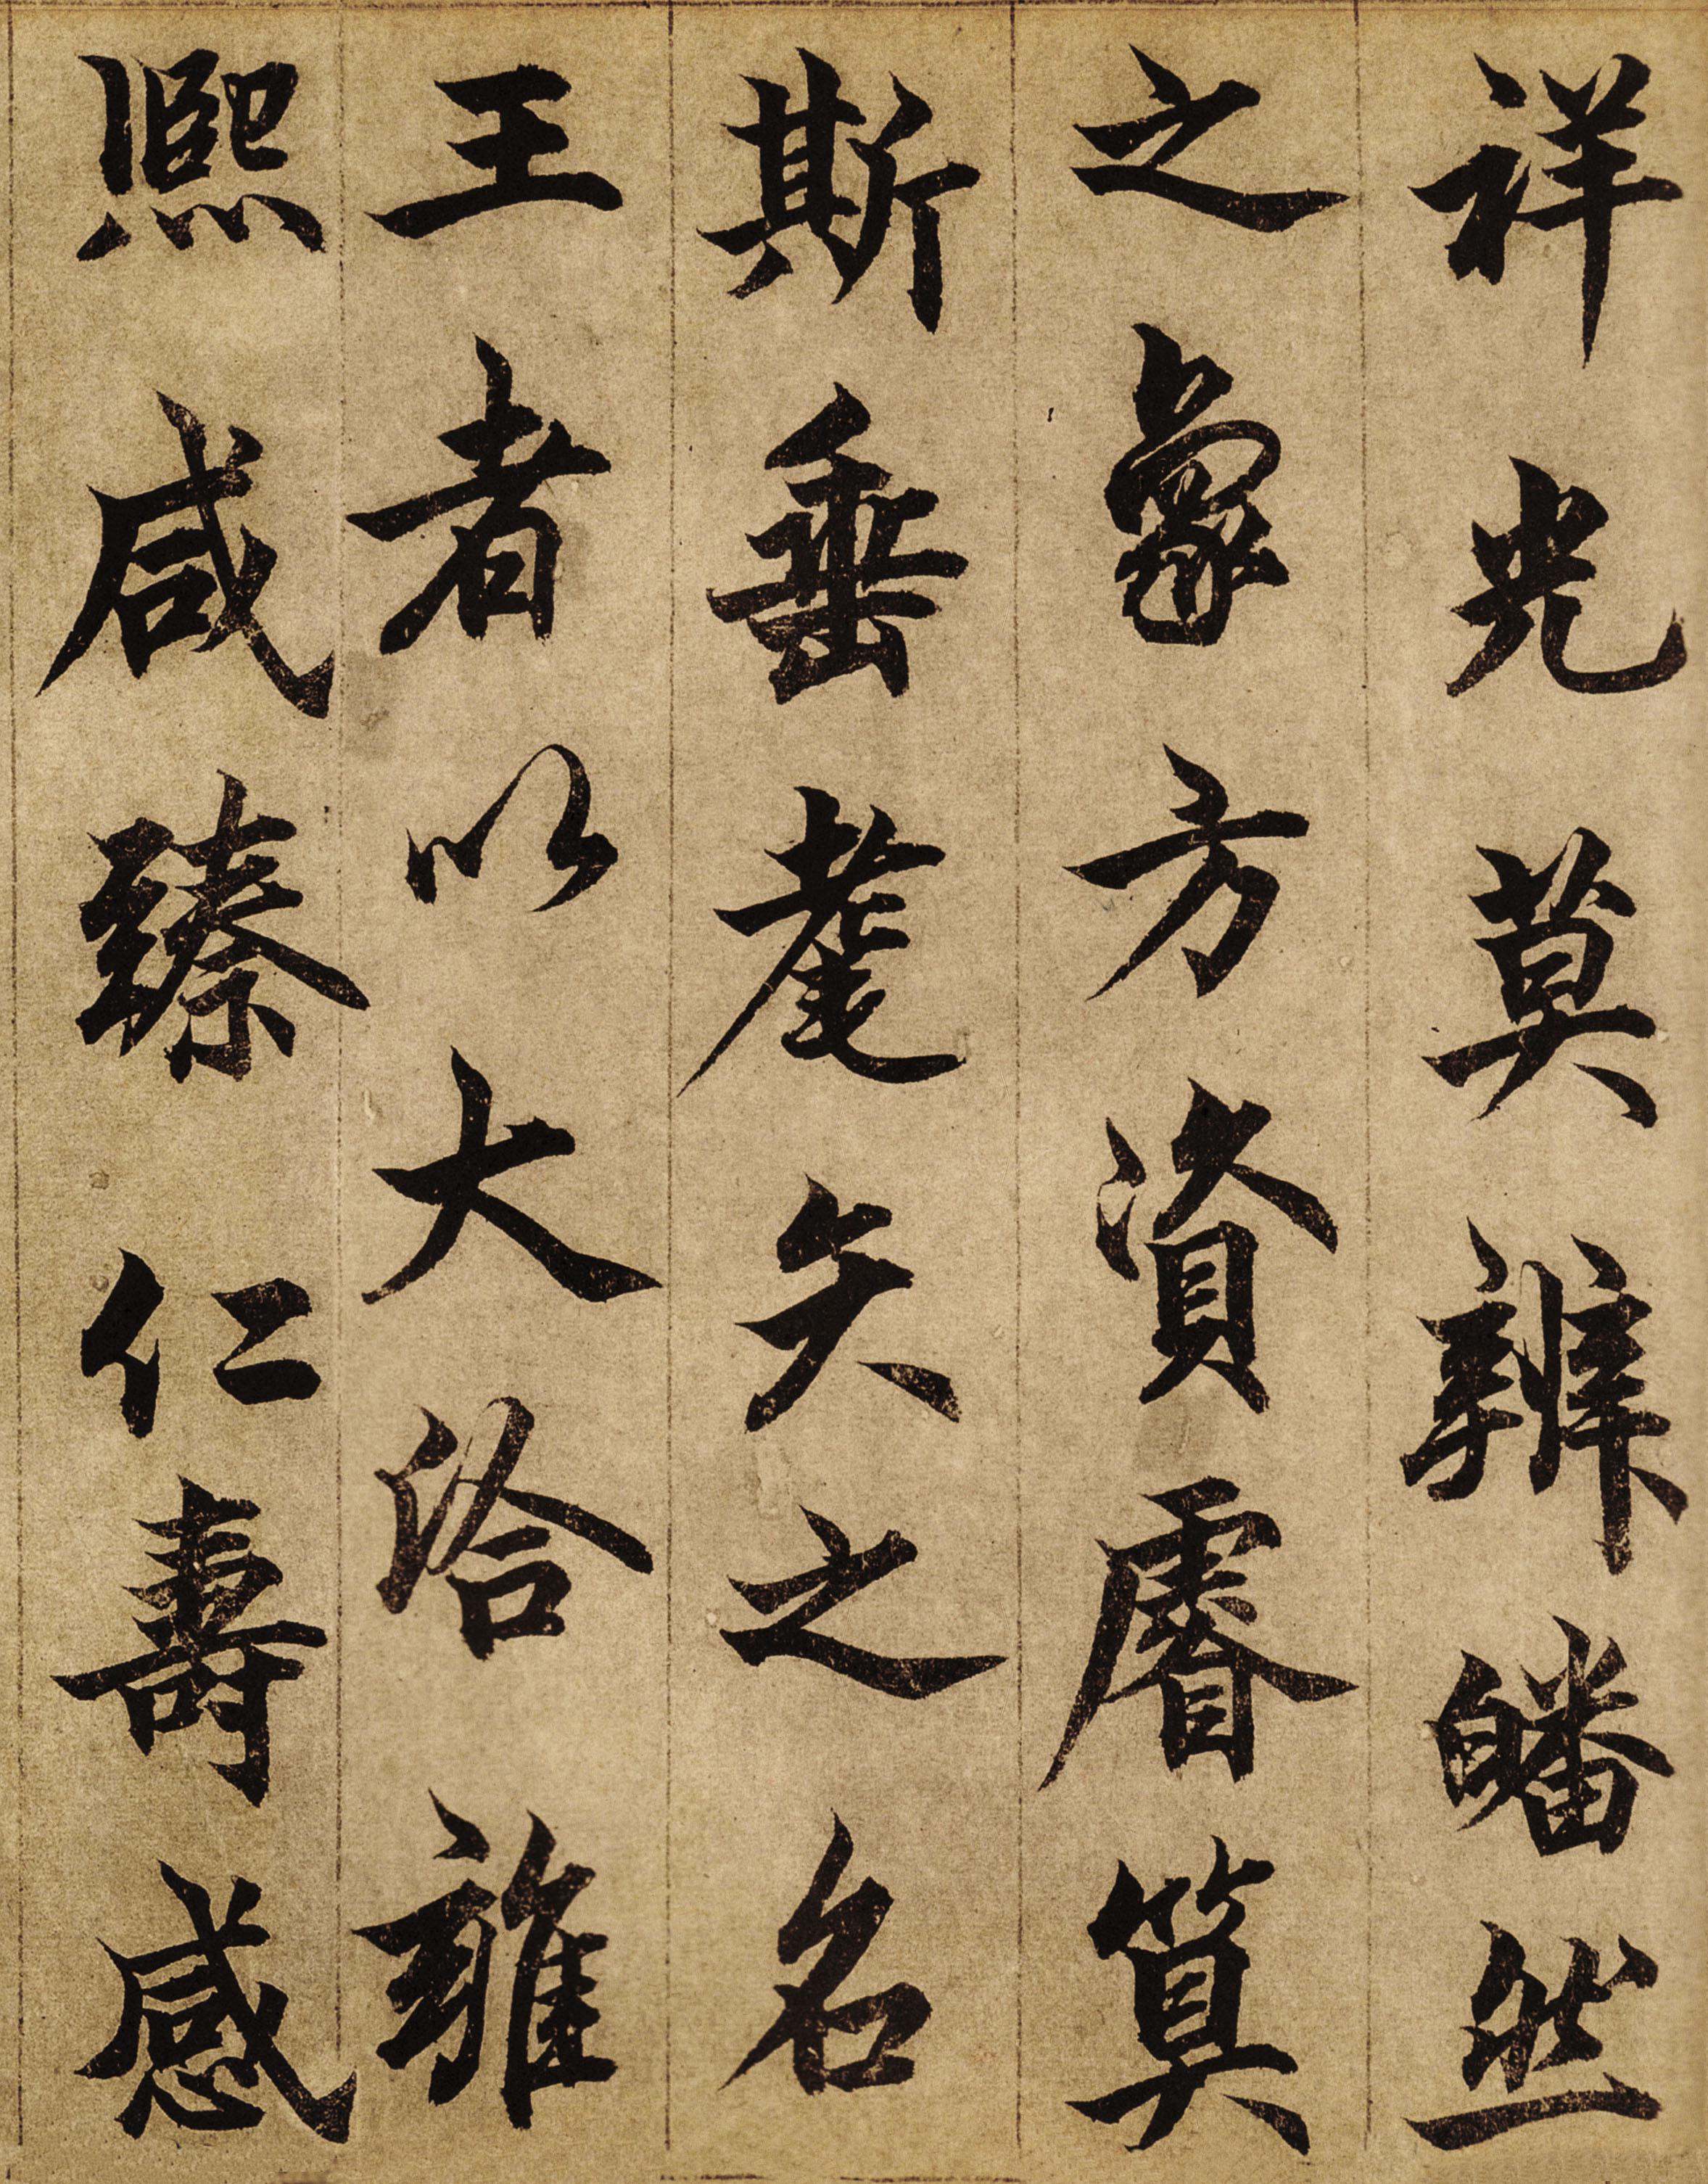 祥光莫辨皤然
之象方資睿筭
斯垂耄矣之名
王者以大洽雍
熙咸臻仁壽感